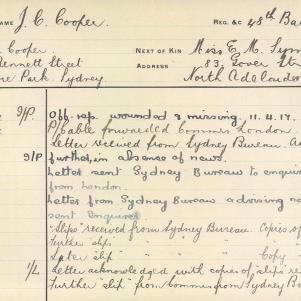 NAME J. C. Cooper. REG. & C 48th Ba
. Cooper. NEXT OF KIN Miss E. M. Sym
Bennett Street ADDRESS 83, Gover Str
re Park. Sydney North Adelaide
9/P. Off. rep. wounded & missing. 11.4.17.
P/Cable forwarded Commrs London.
Letter received from Sydney Bureau. As
9/P further, in absence of news.
Letter sent Sydney Bureau to enquire
from London.
Letter from Sydney Bureau advising no
sent Enquirer
"Slips" received from Sydney Bureau. Copies of
Further slip " " " "
Later slip " " " Copy "
1/L Letter acknowledged with copies of slips re
Further slip from Commrs from Sydney B